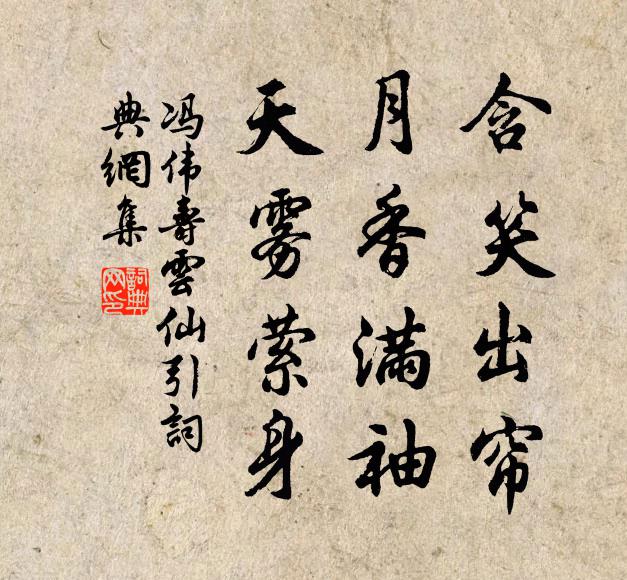 含笑出帘
月香满袖
天雾萦身
冯伟寿雲仙引詞
典網集
詞典网印